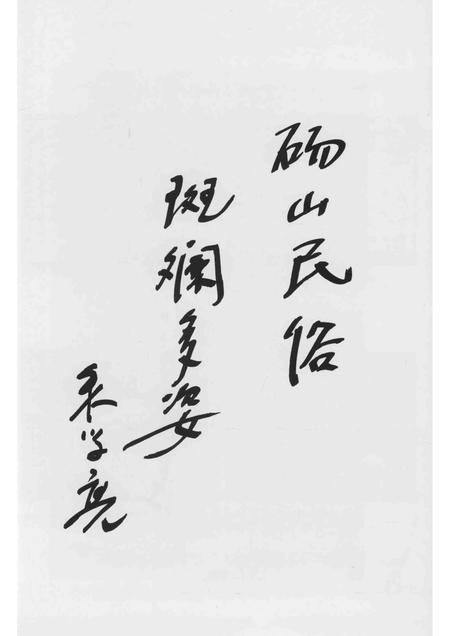 砀山民俗
斑斓多姿
朱学亮